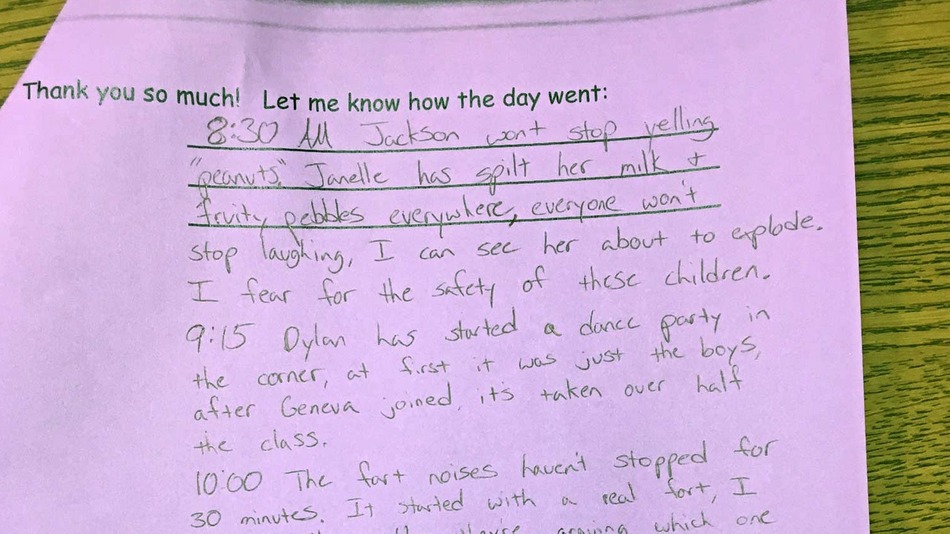 Thank you so much! Let me know how the day went:
8:30 AM Jackson wont stop yelling
"peanuts." Janelle has spilt her milk &
fruity pebbles everywhere, everyone won't
stop laughing, I can see her about to explode.
I fear for the safety of these children.
9:15 Dylan has started a dance party in
the corner, at first it was just the boys,
after Geneva joined, it's taken over half
the class.
10:00 The fart noises haven't stopped for
30 minutes. It started with a real fart, I
they're arguing which one